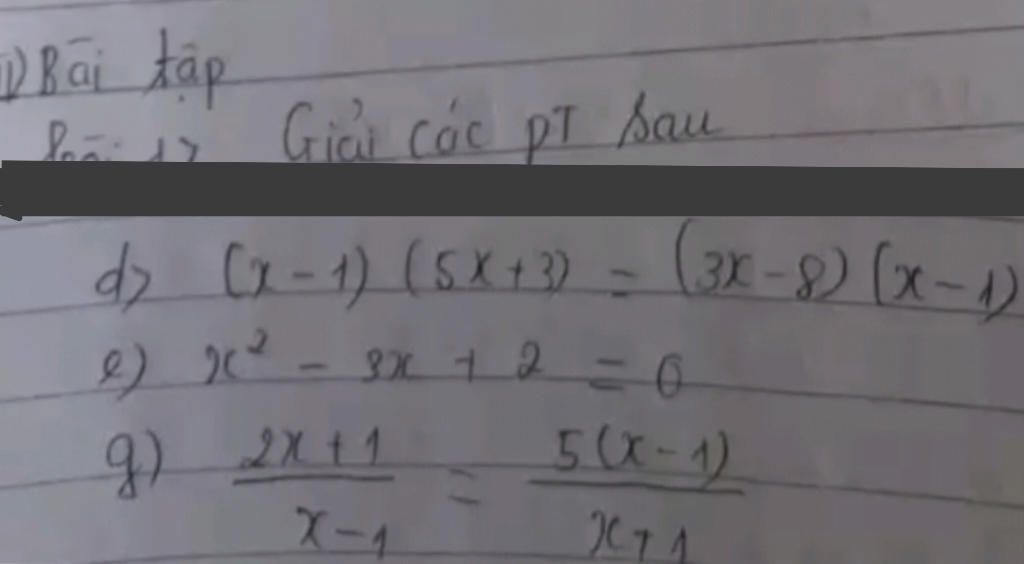 1) Bài tập
Bài 1> Giải các pT sau
d> (x-1) (5x+3) = (3x-8) (x-1)
e) x² - 3x + 2 = 0
g) 2x+1 / x-1 = 5(x-1) / x+1